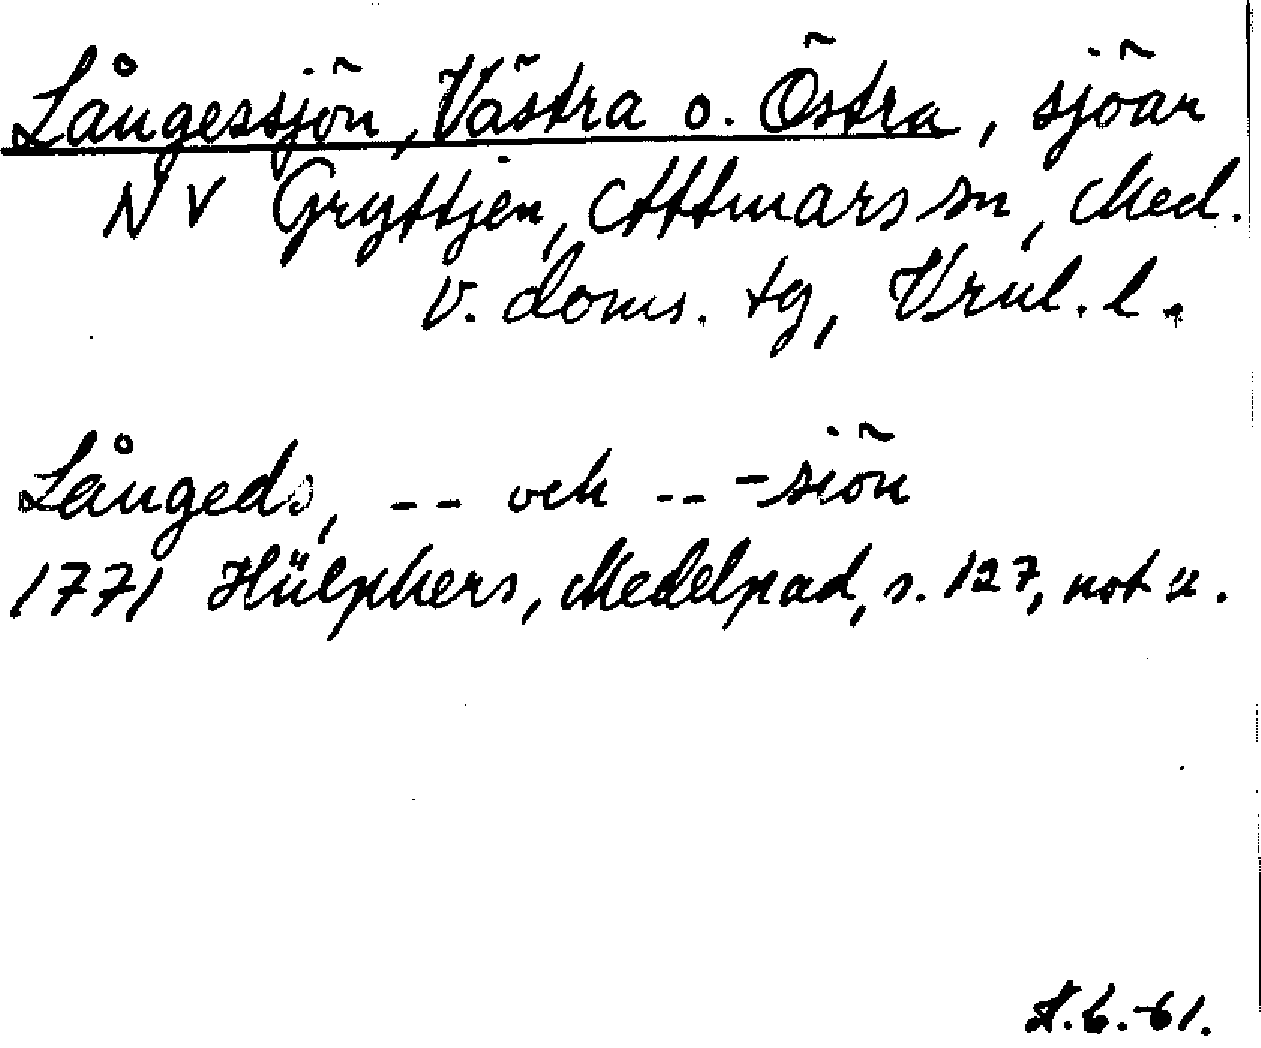 Långessjön, Västra o. Östra, sjöar
NV Gryttjen, Attmars sn, Med.
v. doms. tg, Vrnl. l.
Långeds, -- och -- -siön
1771 Hülphers, Medelpad, s. 127, not u.